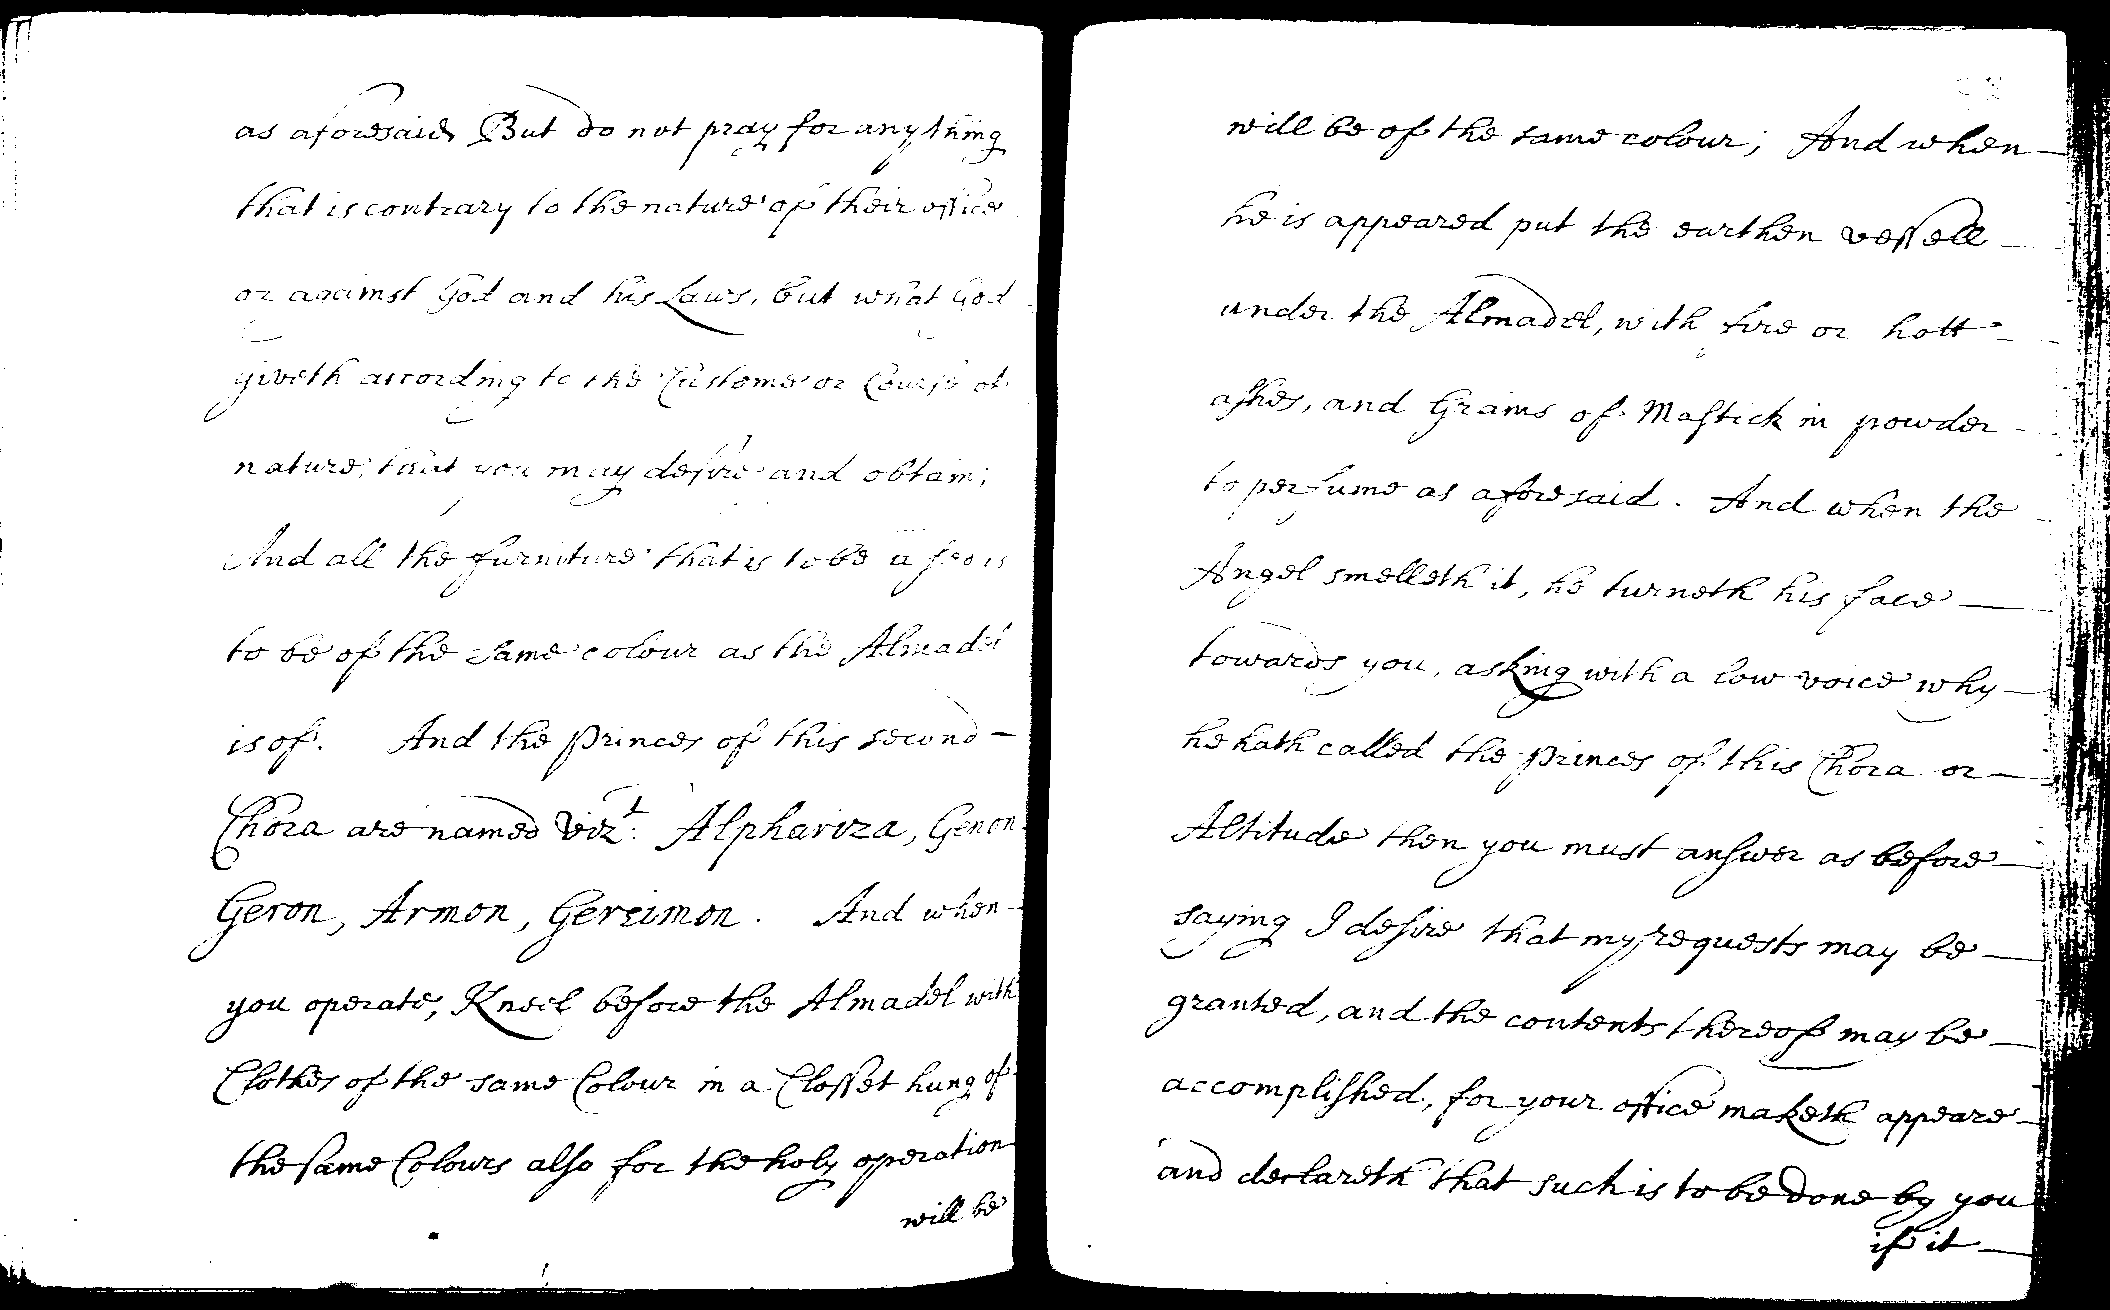 as aforesaid But do not pray for any thing
that is contrary to the nature of their office
or against God and his Laws, but what God
giveth according to the Custome or Course of
nature; that you may desire and obtain;
And all the furniture that is to be used is
to be of the same colour as the Almadel
is of. And the princes of this second
Chora are named vizt: Alphariza, Genon
Geron, Armon, Gereimon. And when
you operate, Kneel before the Almadel with
Clothes of the same Colour in a Closset hung of
the same Colours also for the holy operation
will be
will be of the same colour; And when
he is appeared put the earthen vessell
under the Almadel, with fire or hott
ashes, and Grains of Mastick in powder
to perfume as aforesaid. And when the
Angel smelleth it, he turneth his face
towards you, asking with a low voice why
he hath called the princes of this Chora or
Altitude then you must answer as before
saying I desire that my requests may be
granted, and the contents thereof may be
accomplished, for your office maketh appeare
and declareth that such is to be done by you
if it